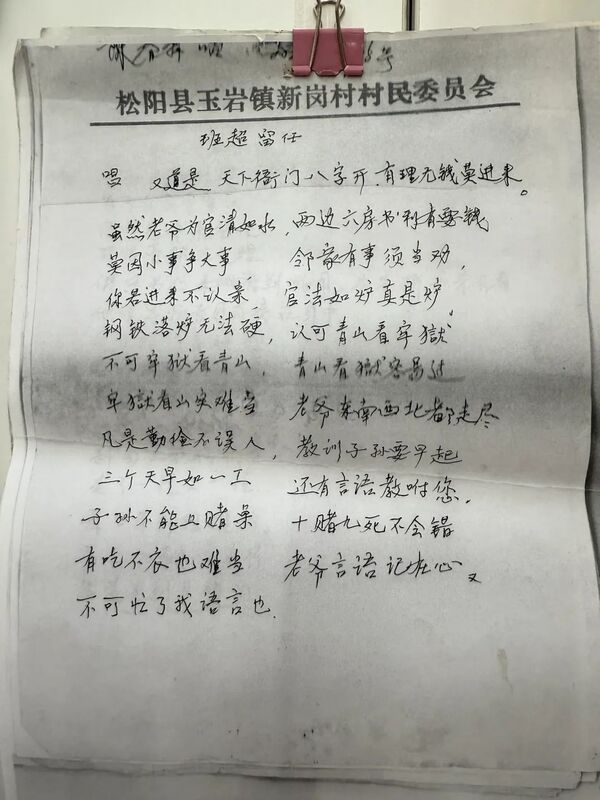 号
松阳县玉岩镇新岗村村民委员会
班超留任
唱 又道是 天下衙门八字开，有理无钱莫进来。
虽然老爷为官清如水，两边六房书利有要钱
莫因小事争大事 邻家有事须当劝，
你若进来不认亲， 官法如炉真是炉，
钢铁落炉无法硬， 认可青山看牢獄
不可牢獄看青山， 青山看獄容易过
牢獄看山实难当 老爷东南西北都走尽
凡是勤捡不误人， 教训子孙要早起
三个天早如一工 还有言语教咐您，
子孙不能上赌桌 十赌九死不会错
有吃不衣也难当 老爷言语记在心又
不可忙了我语言也